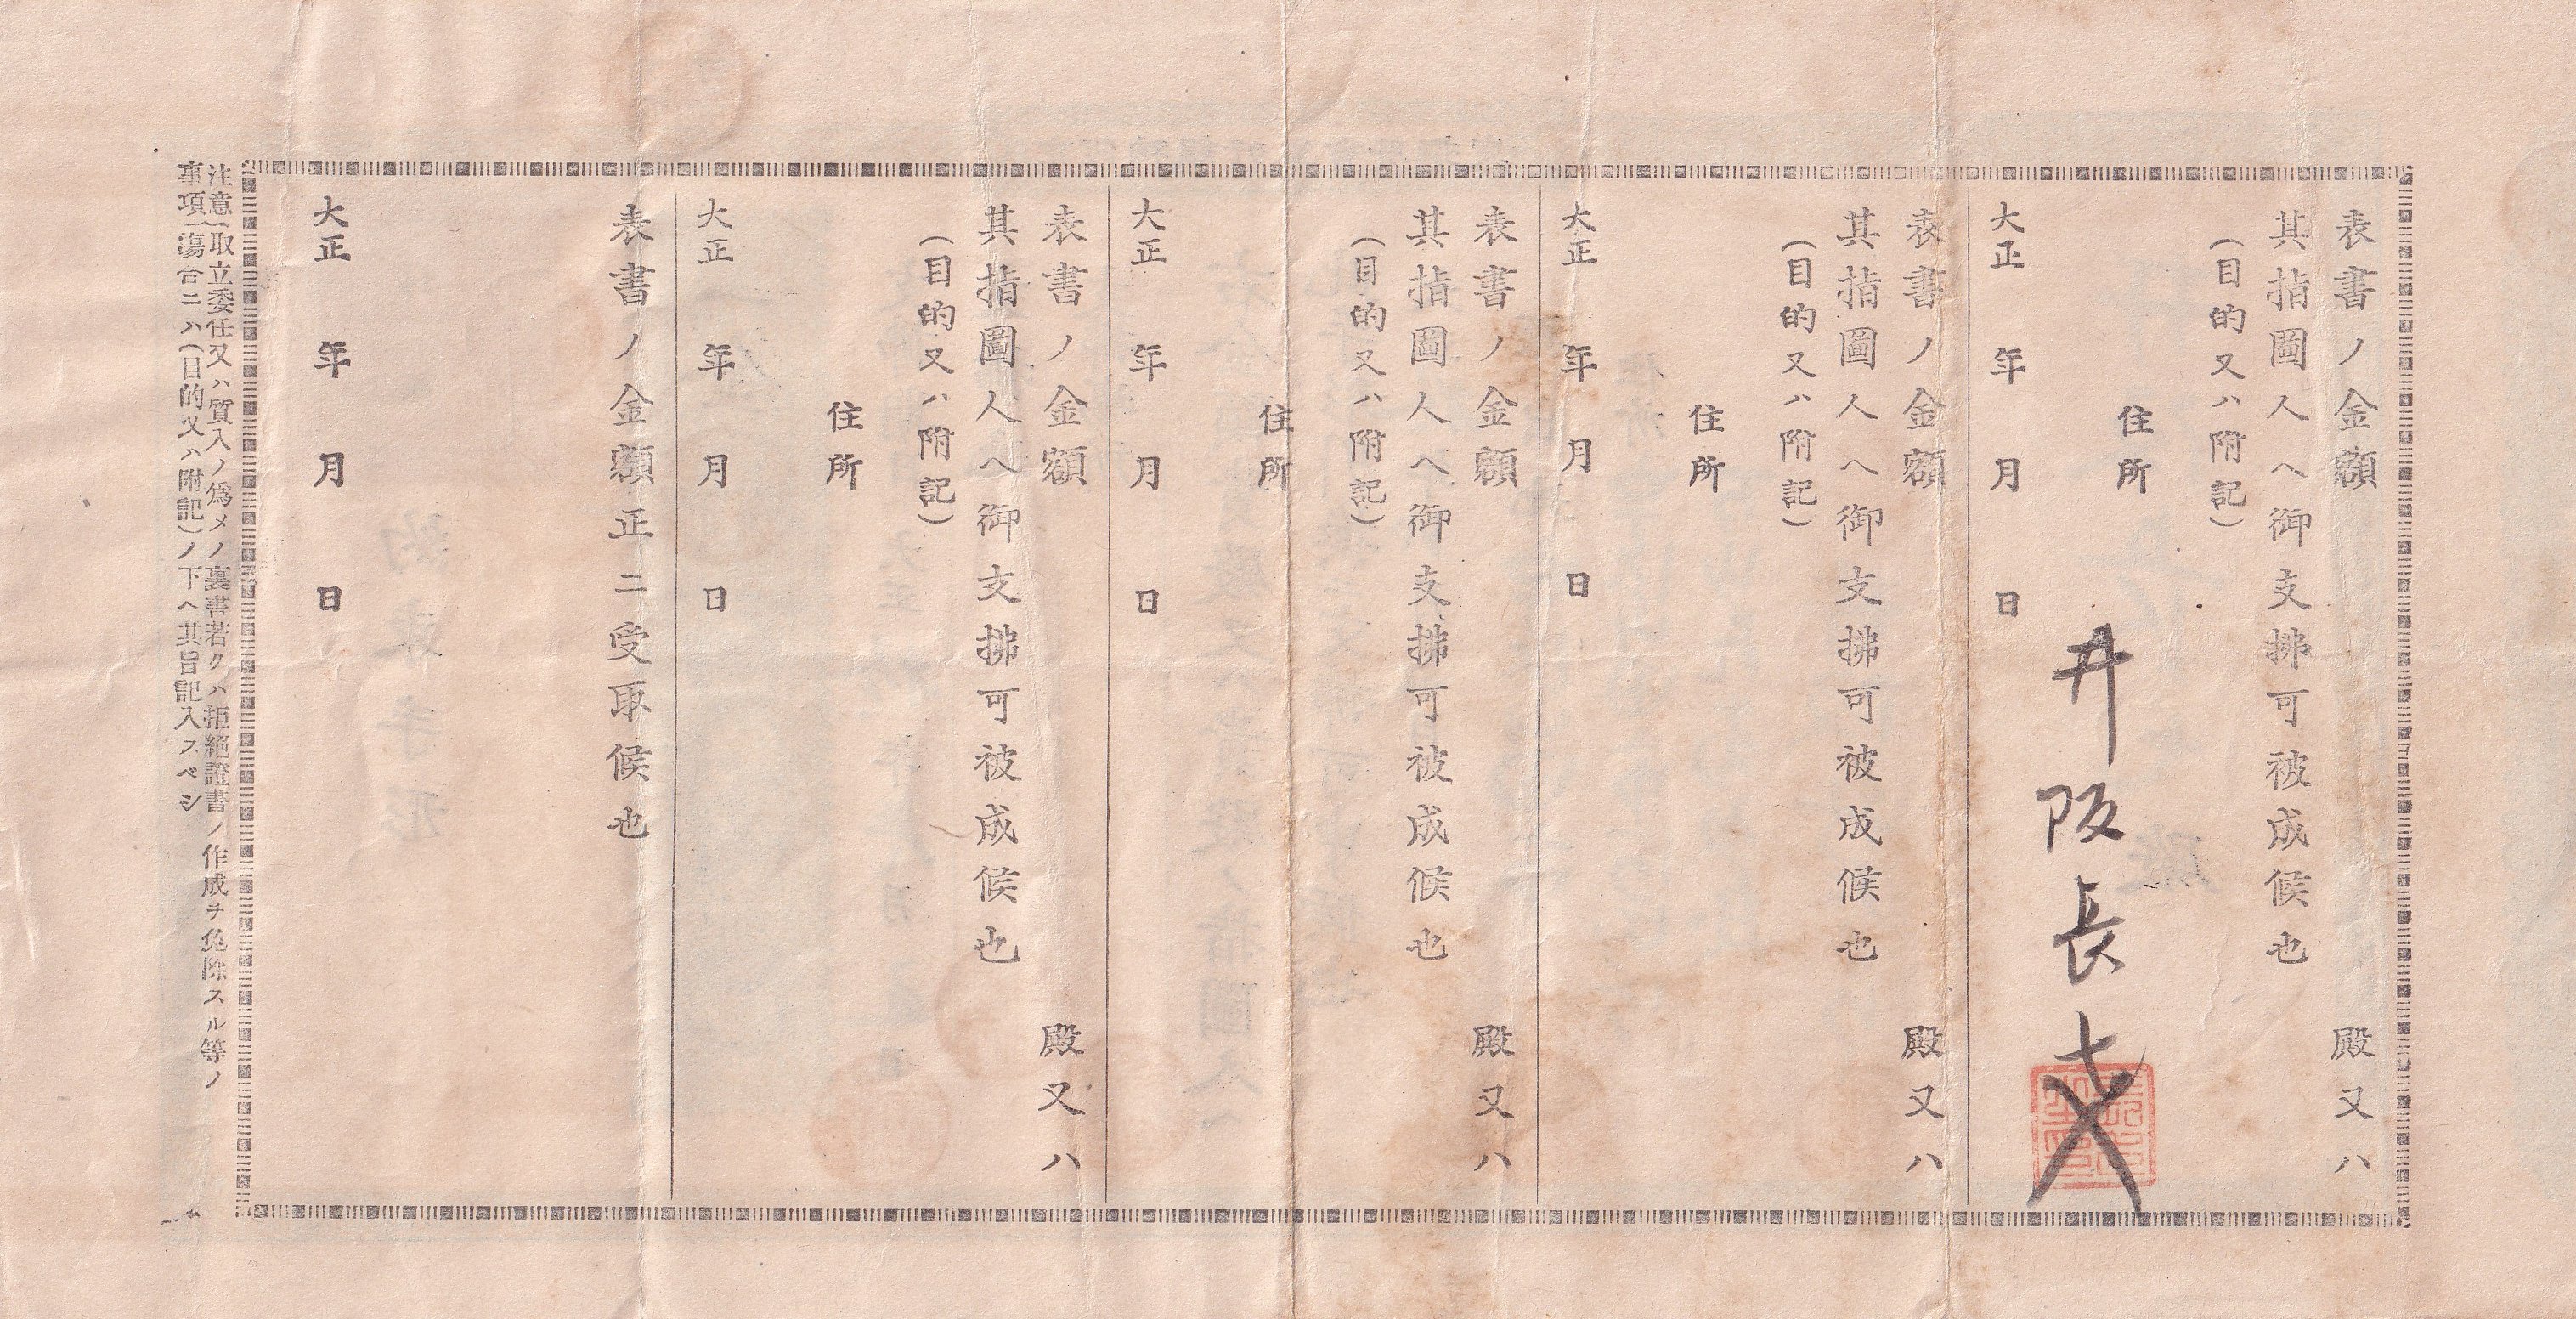 表書ノ金額　殿又ハ
其指圖人ヘ御支拂可被成候也
(目的又ハ附記)
住所
大正　年　月　日
井阪長
表書ノ金額　殿又ハ
其指圖人ヘ御支拂可被成候也
(目的又ハ附記)
住所
大正　年　月　日
表書ノ金額　殿又ハ
其指圖人ヘ御支拂可被成候也
(目的又ハ附記)
住所
大正　年　月　日
表書ノ金額　殿又ハ
其指圖人ヘ御支拂可被成候也
(目的又ハ附記)
住所
大正　年　月　日
表書ノ金額正ニ受取候也
大正　年　月　日
注意(取立委任又ハ質入ノ爲メノ裏書若クハ拒絕證書ノ作成ヲ免除スル等ノ
事項(塲合ニハ(目的又ハ附記)ノ下ヘ其旨記入スベシ